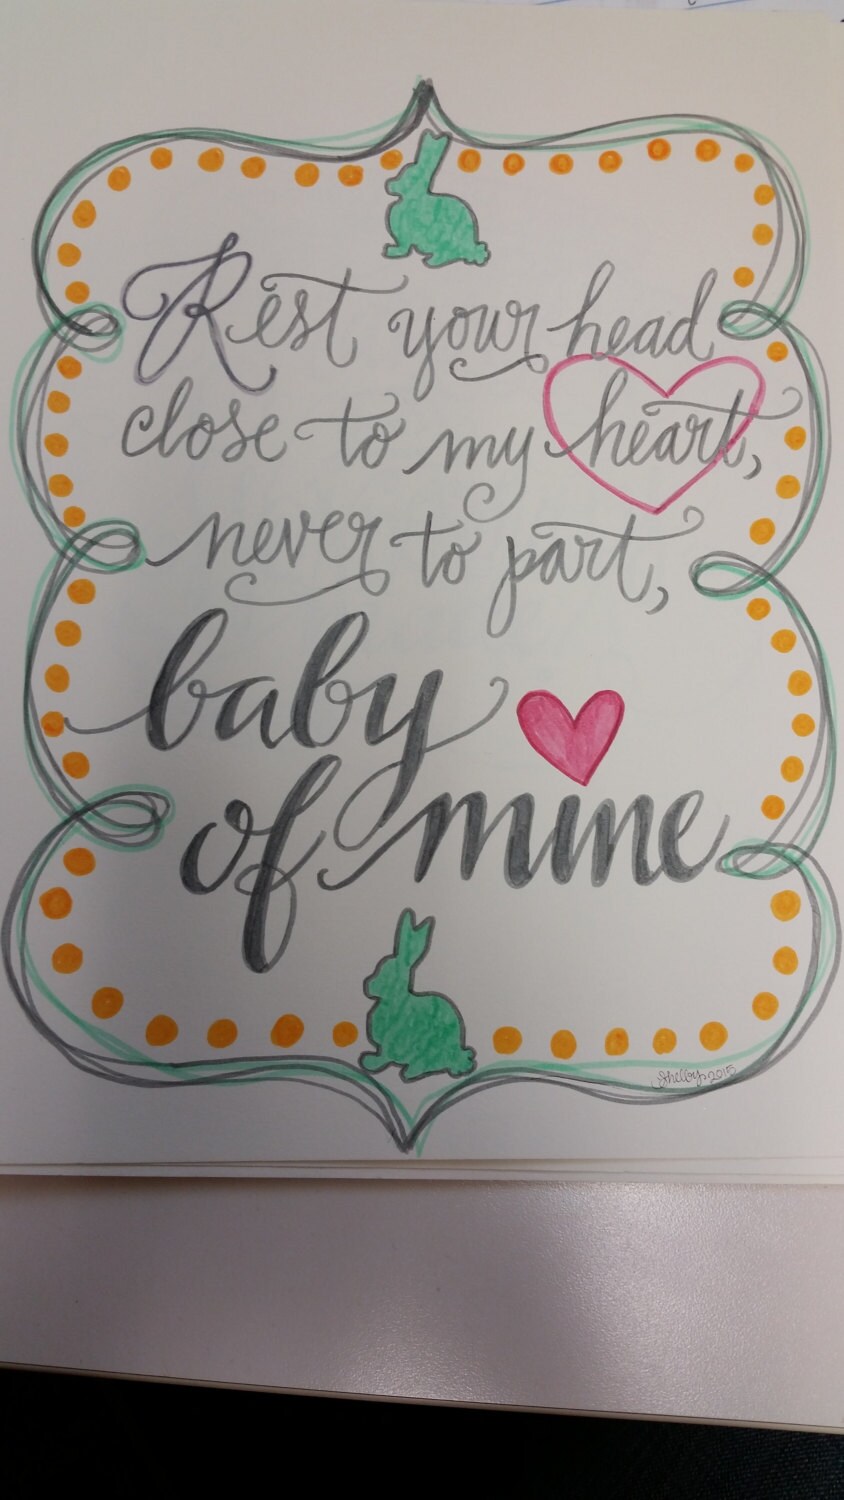 Rest your head
close to my heart,
never to part,
baby
of mine
Shelby 2015